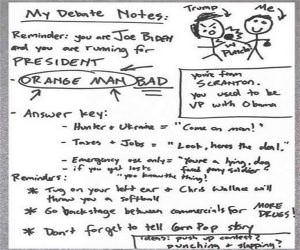 My Debate Notes:
Trump
Me
Reminder: you are Joe Biden
and you are running for
PRESIDENT
Punch!
- ORANGE MAN BAD
you're from
SCRANTON.
you used to be
VP with Obama
- Answer key:
- Hunter + Ukraine = "Come on man!"
- Taxes + Jobs = "Look, heres the deal."
- Emergency use only = "You're a lying, dog
if you get lost faced pony soldier"
Reminders: "you know the thing!
* Tug on your left ear + Chris Wallace will
throw you a softball
* Go backstage between commercials for MORE
DRUGS!
* Don't forget to tell Corn Pop story
Ideas: push up contest?
punching + slapping?